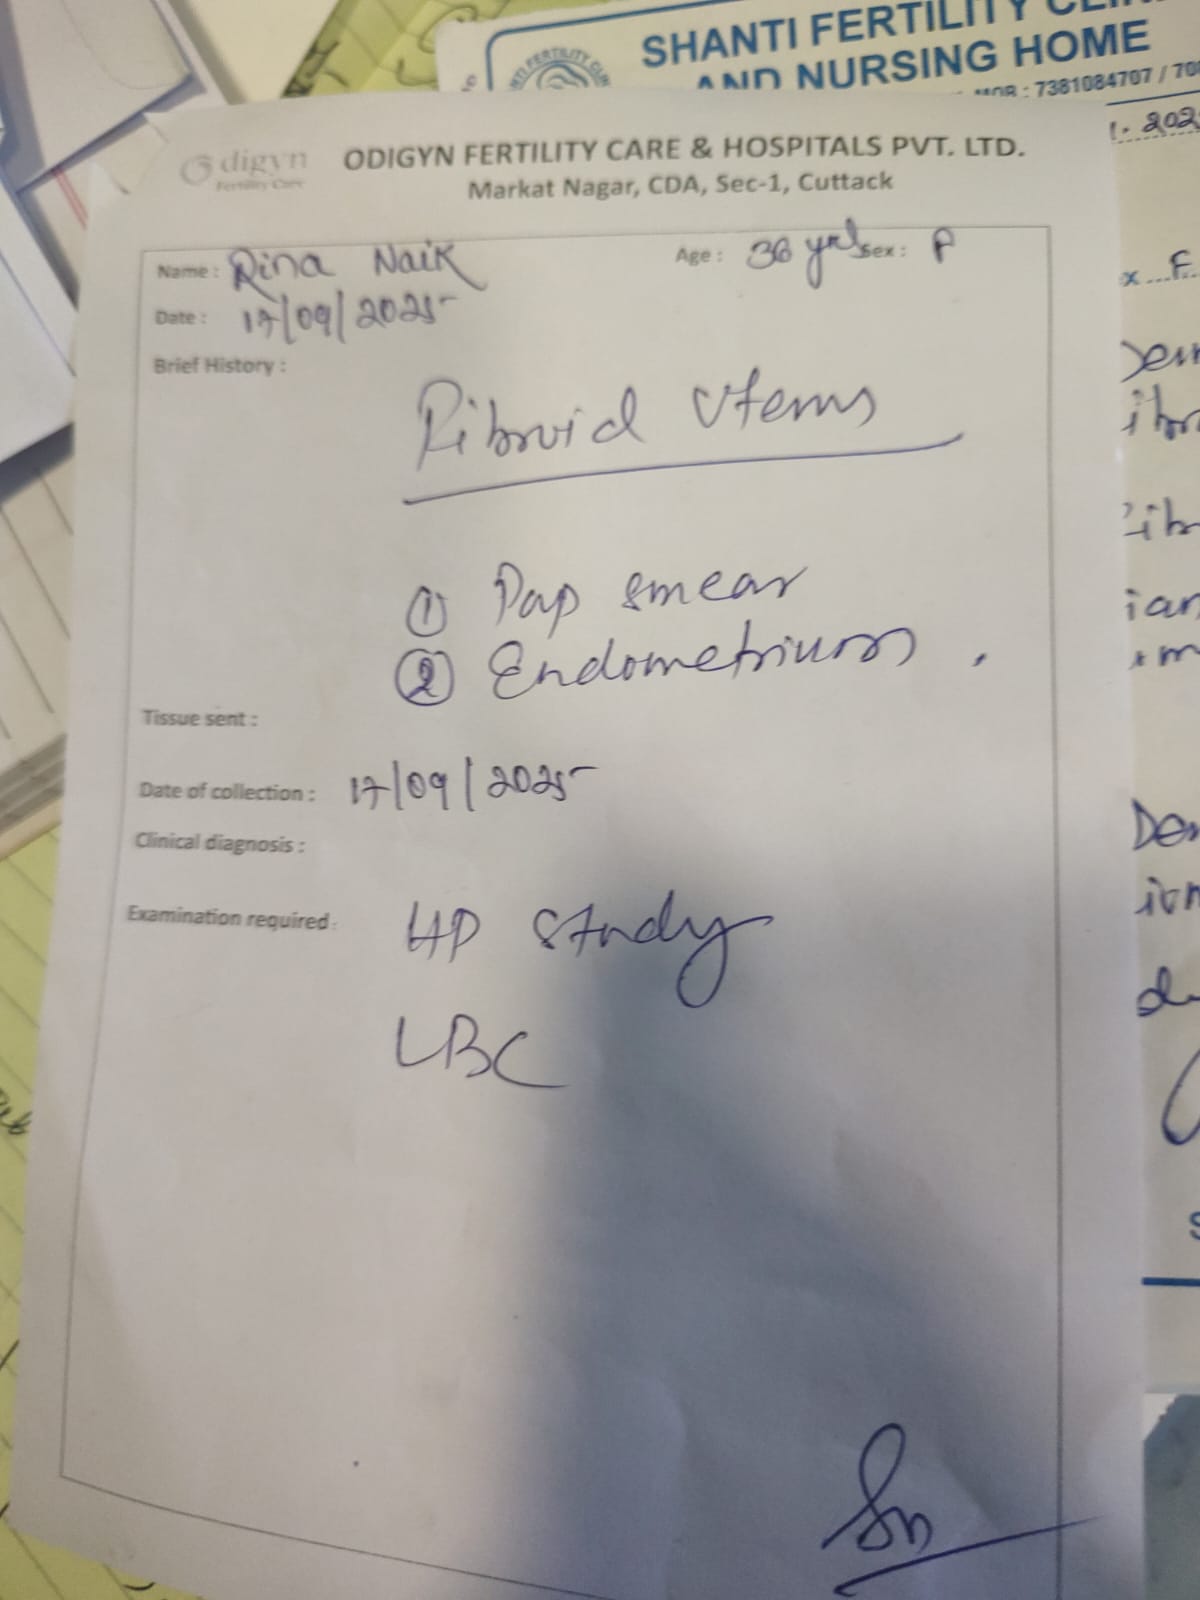 SHANTI FERTILITY
AND NURSING HOME
MOB : 7381084707 /
digyn
Fertility Care
ODIGYN FERTILITY CARE & HOSPITALS PVT. LTD.
Markat Nagar, CDA, Sec-1, Cuttack
Name : Rina Naik Age : 36 yrs Sex : F
Date : 17/09/2025
Brief History :
Fibroid Uterus
① Pap smear
② Endometrium.
Tissue sent :
Date of collection : 17/09/2025
Clinical diagnosis :
Examination required :
HP study
LBC